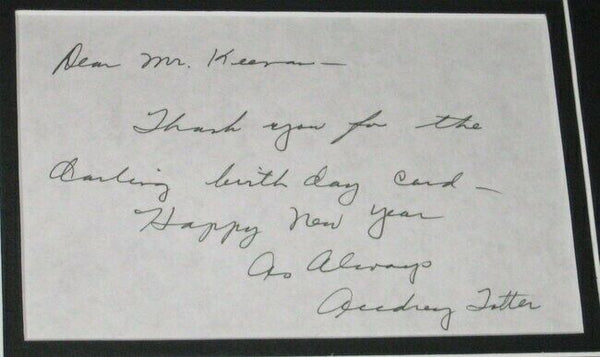 Dear Mr. Keenan —
Thank you for the
darling birth day card —
Happy New Year
As Always
Audrey Totter